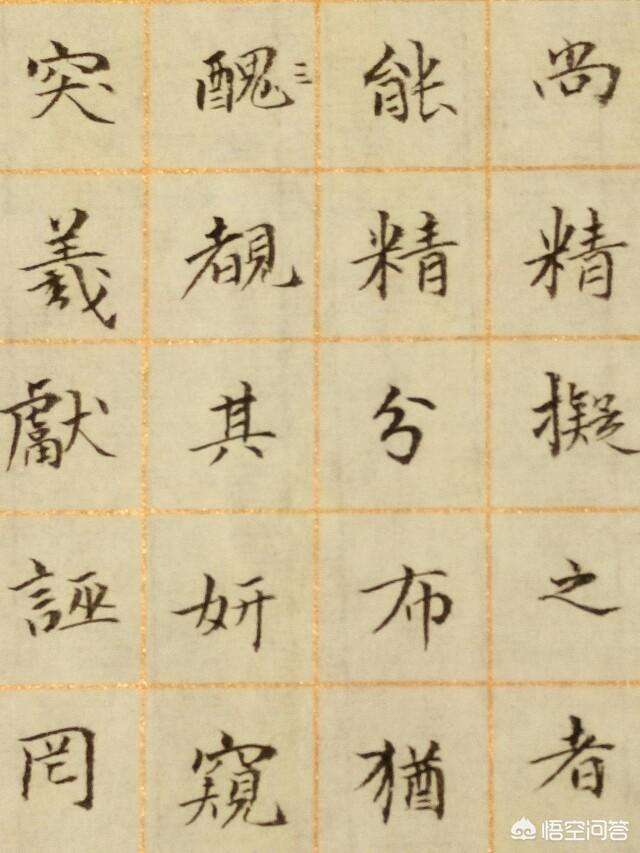 尚精擬之者
能精分布猶
醜覩其妍窺
突羲獻誣罔
悟空问答